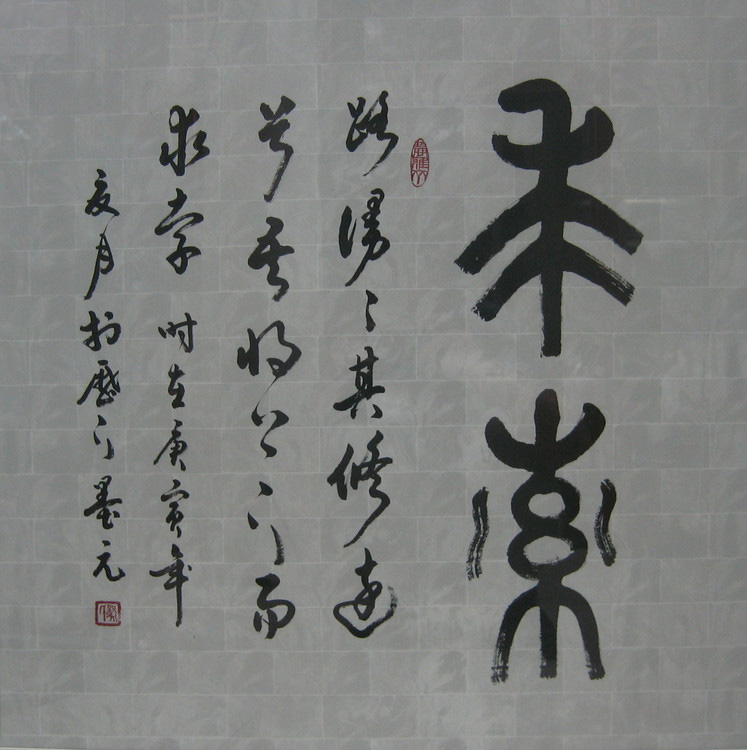 求索
路漫々其修远
兮吾将上下而
求索 时在庚寅年
夏月於歷下墨元